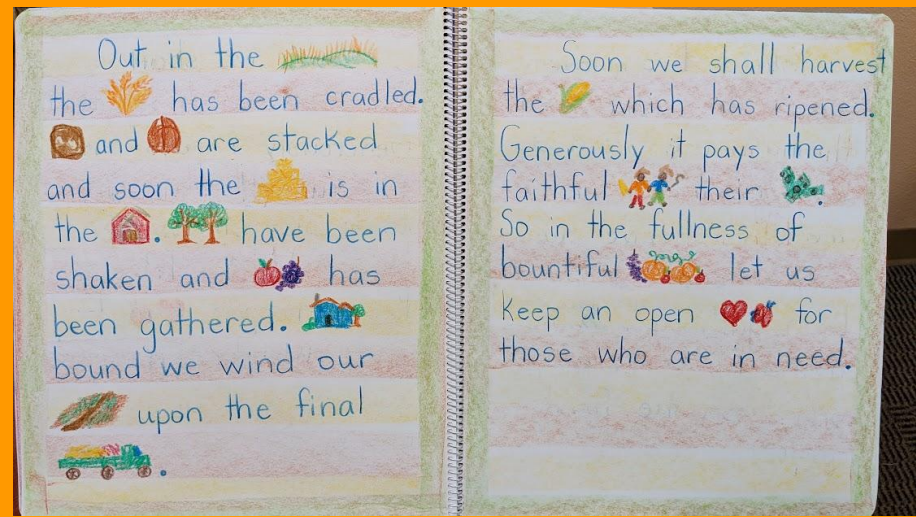 Out in the
the has been cradled.
and are stacked
and soon the is in
the . have been
shaken and has
been gathered.
bound we wind our
upon the final
.
Soon we shall harvest
the which has ripened.
Generously it pays the
faithful their .
So in the fullness of
bountiful let us
keep an open for
those who are in need.